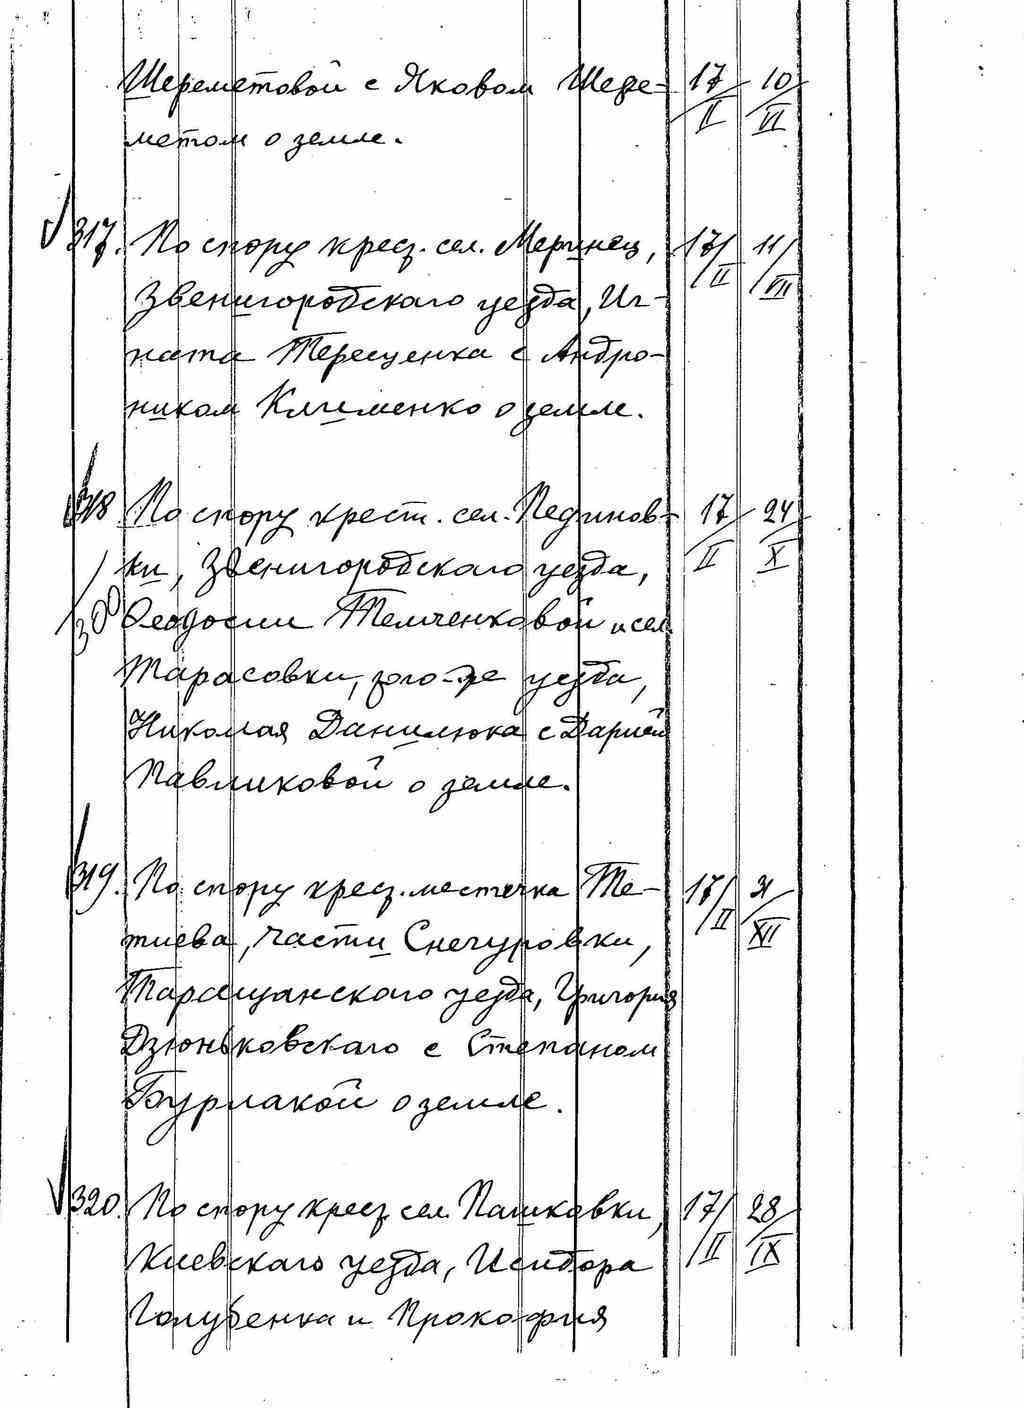 Шереметовой с Яковом Шере- 17/II 10/VI
метом о земле.
317. По спору крест. сел. Меринец, 17/II 11/VII
Звенигородского уезда, Иг-
ната Терещенка с Андро-
ником Клименко о земле.
318 По спору крест. сел. Пединов- 17/II 24/X
ки, Звенигородского уезда,
Феодосии Темченковой и сел.
Тарасовки, того-же уезда,
Николая Данилюка с Дарией
Павликовой о земле.
319. По спору крест. местечка Те- 17/II 31/XII
тиева, части Снегуровки,
Таращанского уезда, Григория
Дзюньковского с Степаном
Бурлакой о земле.
320. По спору крест. сел. Пашковки, 17/II 28/IX
Киевского уезда, Исидора
Голубенка и Прокофия